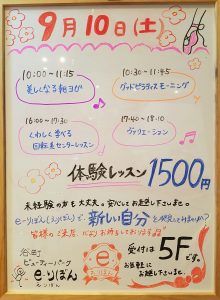 9月10日(土)
10:00〜11:15
美しくなる朝ヨガ
10:30〜11:45
グッドピラティスモーニング
16:00〜17:30
くわしく学べる
回転&センターレッスン
17:40〜18:10
ヴァリエーション
体験レッスン 1500円
未経験の方も大丈夫。安心してお越し下さいませ。
e-りぼん(いいりぼん)で、新しい自分を発見してみませんか?
皆様のご来店、心よりお待ちしております
谷町
ビューティーパーク
e-りぼん
e
受付は 5Fです。
お気軽に
お越し下さいませ。